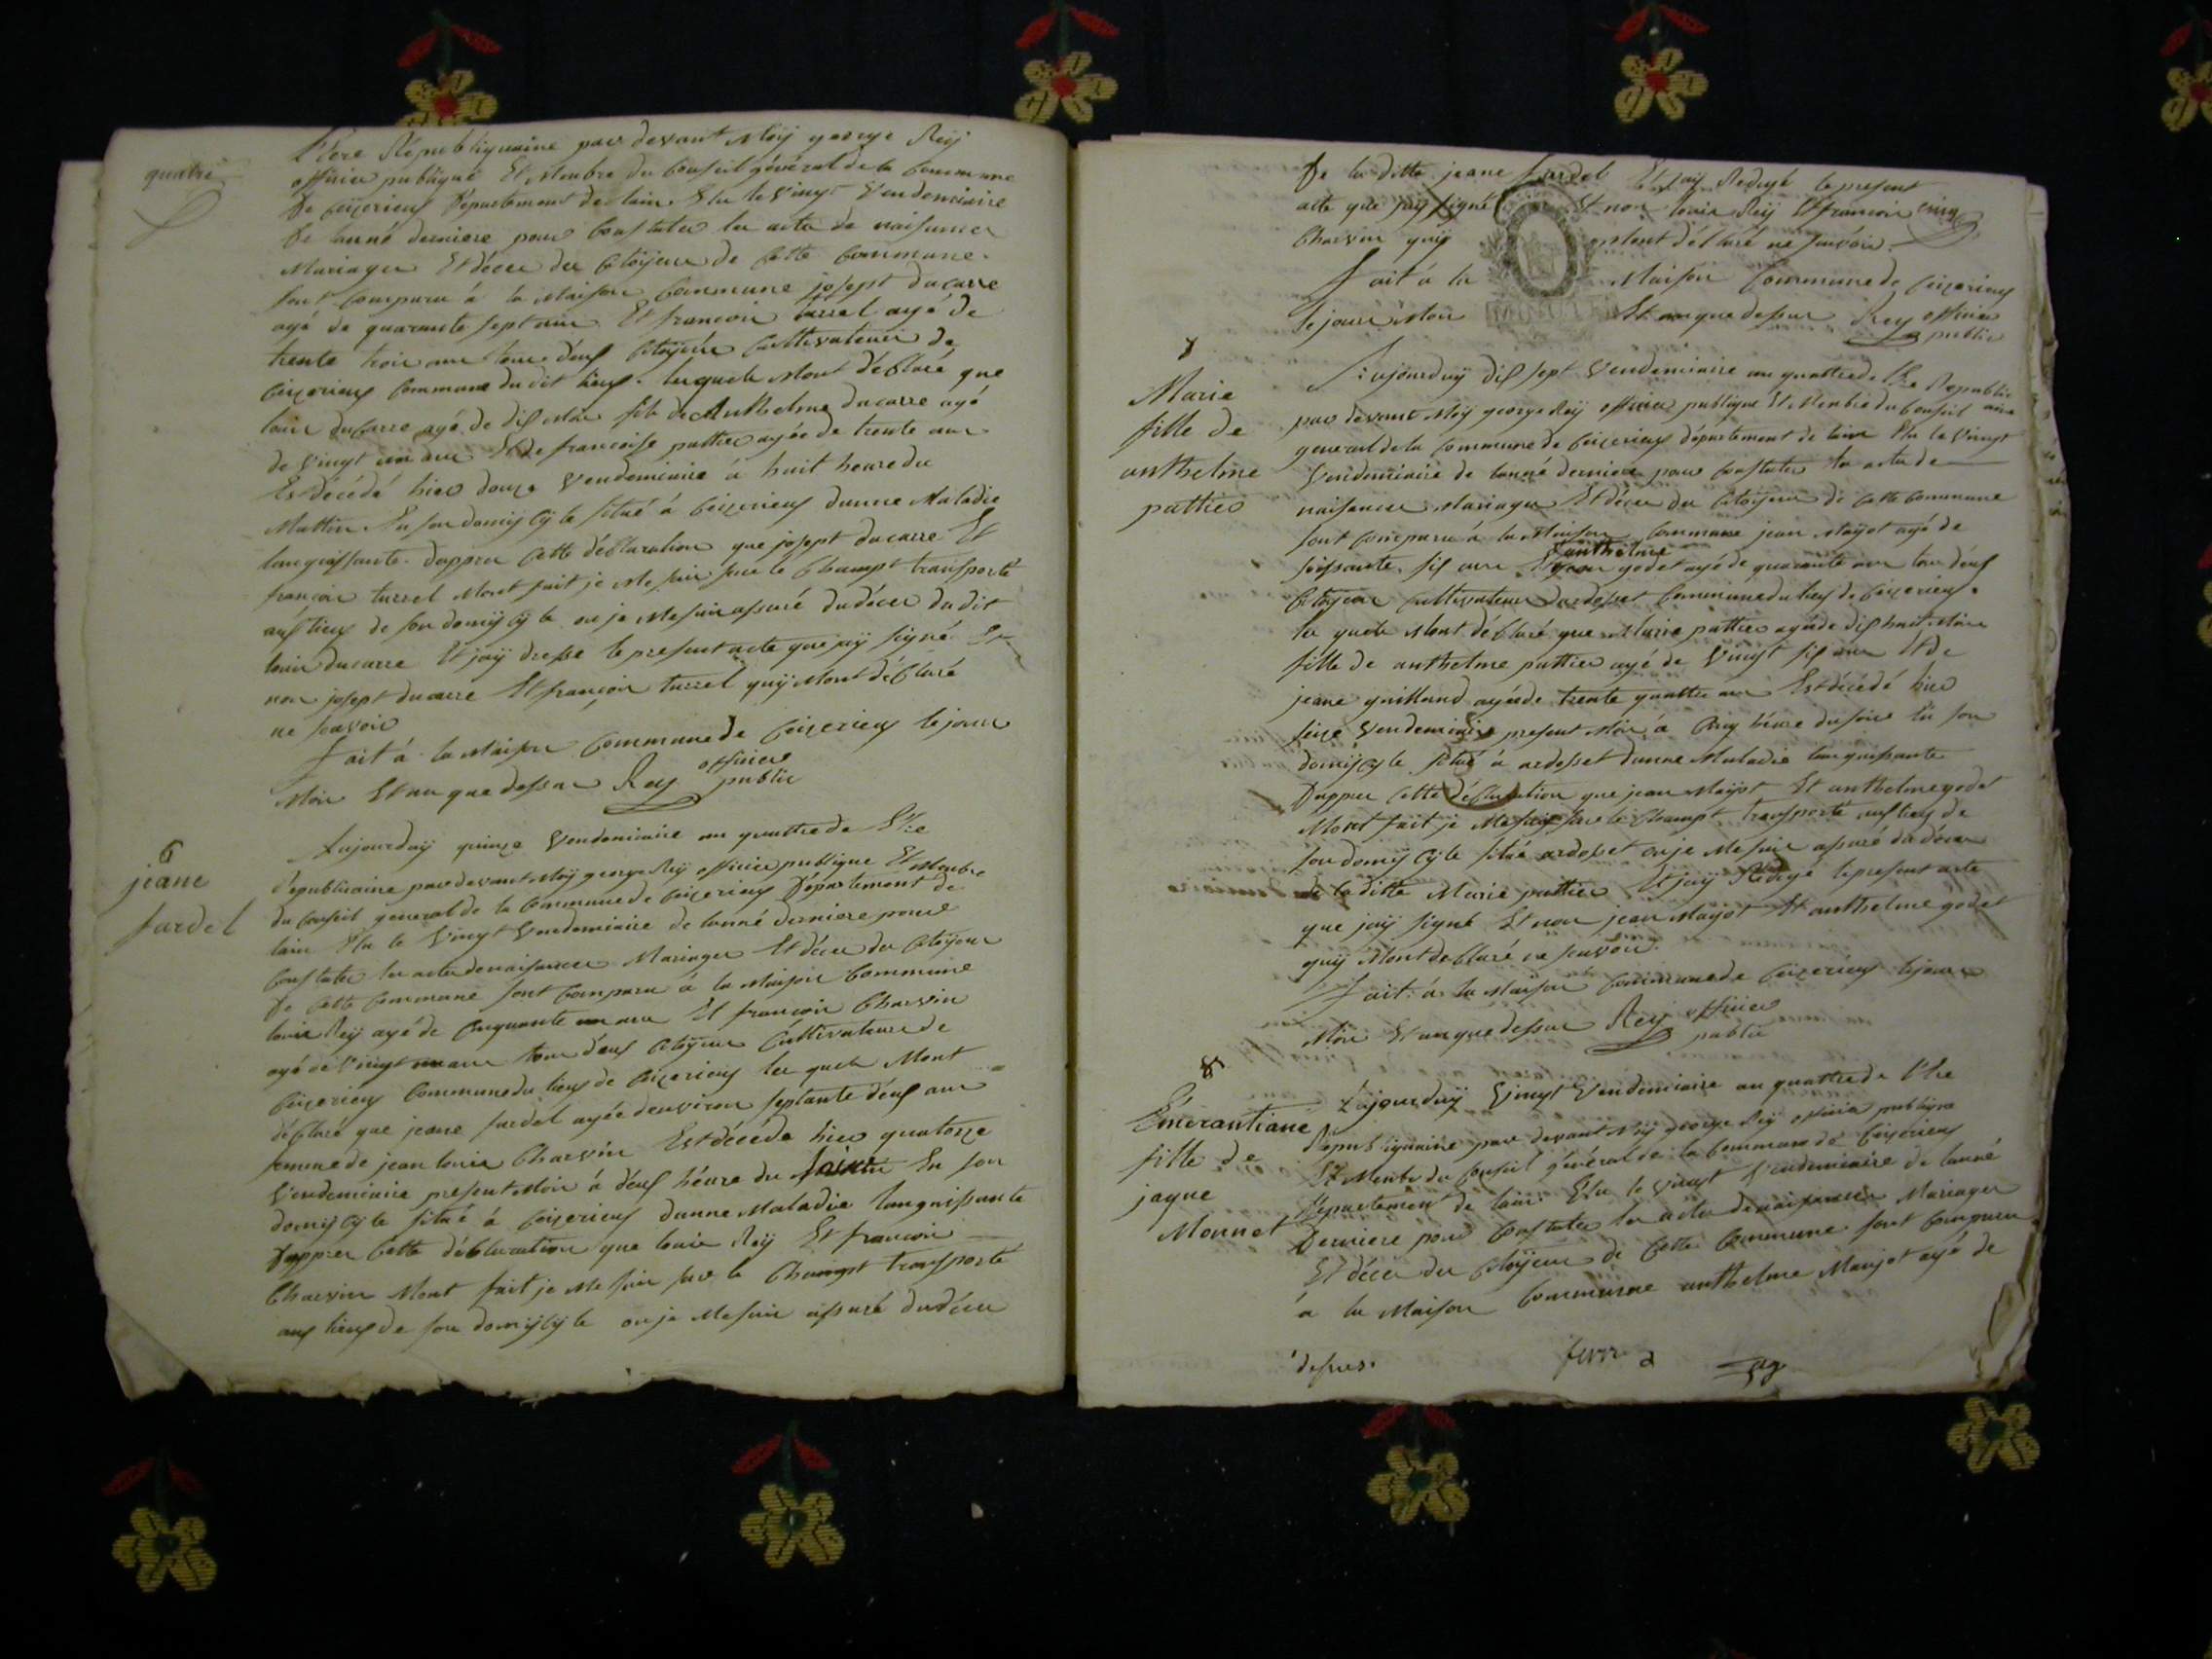 quatre
L'Ere Républiquaine par devant Moÿ george Reÿ
officier publique Et Membre du Conseil général de la Commune
De Ceÿzerieux Département de lain Elu le Vingt Vendemiaire
De lanné derniere pour Constater les actes de naissances
Mariages Et déces des Citoÿens de Cette Commune
sont Comparu à la Maison Commune josept ducarre
agé de quarante sept ans Et francois turrel agé de
trente trois ans tous deux Citoÿens Cultivateurs de
Ceÿzerieux Commune du dit lieux. lesquels Mont déClaré que
louis duCarre agé de dix Mois fils de Anthelme ducarre agé
de Vingt un ans Et de francoise pattier agée de trente ans
Est décédé hier douze Vendemiaire à huit heure du
Mattin En son domiçÿle situé à Ceÿzerieux dunne Maladie
languissante. dappres Cette déClaration que josept ducarre Et
francois turrel Mont fait je Me suis sur le Champt transporté
aux lieux de son domiçÿle ou je Me suis assuré du déces du dit
louis ducarre Et jaÿ dressé le present acte que jaÿ signé Et
non josept ducarre Et françois turrel quÿ Mont déClaré
ne savoir
fait à la Maison Commune de Ceÿzerieux le jour
Mois Et an que dessus Rey officier
public
6
jeane
fardel
Aujourduÿ quinze Vendemiaire an quattre de L'Ere
Republicaine par devant Moÿ george Reÿ officier publique Et Membre
du Conseil general de la Commune de Ceÿzerieux Département de
lain Elu le Vingt Vendemiaire de lanné derniere pour
Constater les actes de naissances Mariages Et déces des Citoÿens
De Cette Commune sont Comparu à la Maison Commune
louis Reÿ agé de Cinquante un ans Et francois Charvin
agé de Vingt un ans tous deux Citoÿens Cultivateurs de
Ceÿzerieux Commune du lieux de Ceÿzerieux lesquels Mont
déClaré que jeane fardel agée denviron septante deux ans
femme de jean louis Charvin Est décédé hier quatorze
Vendemiaire present Mois à deux heure du soire En son
domiçÿle situé à Ceÿzerieux dunne Maladie languissante
Dappres Cette déClaration que louis Reÿ Et francois
Charvin Mont fait je Me suis sur le Champt transporté
aux lieux de son domiçÿle ou je Me suis assuré du déces
De la ditte jeane fardel Et jaÿ Redigé le present
acte que jaÿ signé Et non louis Reÿ Et francois cinq
Charvin quÿ Mont déClaré ne savoir.
fait à la Maison Commune de Ceÿzerieux
le jour Mois Et an que dessus Rey officier
public
7
Marie
fille de
anthelme
pattier
Aujourduÿ dix sept Vendemiaire an quattre de l'Ere Republicaine
par devant Moÿ george Reÿ officier publique Et Membre du Conseil
general de la Commune de Ceÿzerieux département de lain Elu le Vingt
Vendemiaire de lanné derniere pour Constater les actes de
naissances Mariages Et déces des Citoÿens de Cette Commune
sont Comparu à la Maison Commune jean Maÿot agé de
soissante six ans Et anthelme godet agé de quarante ans tous deux
Citoÿens Cultivateurs dardosset Commune du lieux de Ceÿzerieux.
les quels Mont déClaré que Marie pattier agée de dix huit Mois
fille de anthelme pattier agé de Vingt six ans Et de
jeane guilland agée de trente quattre ans Est décédé hier
seize Vendemiaire present Mois à Cinq heure du soire En son
domiçÿle situé à ardosset dunne Maladie languissante
Dappres Cette déClaration que jean Maÿot Et anthelme godet
Mont fait je Me suis sur le Champt transporté aux lieux de
son domiçÿle situé ardosset ou je Me suis assuré du déces
de la ditte Marie pattier Et jaÿ Redigé le present acte
que jaÿ signé Et non jean Maÿot Et anthelme godet
quÿ Mont déClaré ne savoir.
fait à la Maison Commune de Ceÿzerieux le jour
Mois Et an que dessus Rey officier
public
8
Emerantiane
fille de
jaque
Monnet
Aujourduÿ Vingt Vendemiaire an quattre de l'Ere
Republiquaine par devant Moÿ george Reÿ officier publique
Et Membre du Conseil général de la Commune de Ceÿzerieux
Département de lain Elu le Vingt Vendemiaire de lanné
Derniere pour Constater les actes de naissances Mariages
Et déces des Citoÿens de Cette Commune sont Comparu
à la Maison Commune anthelme Maujot agé de